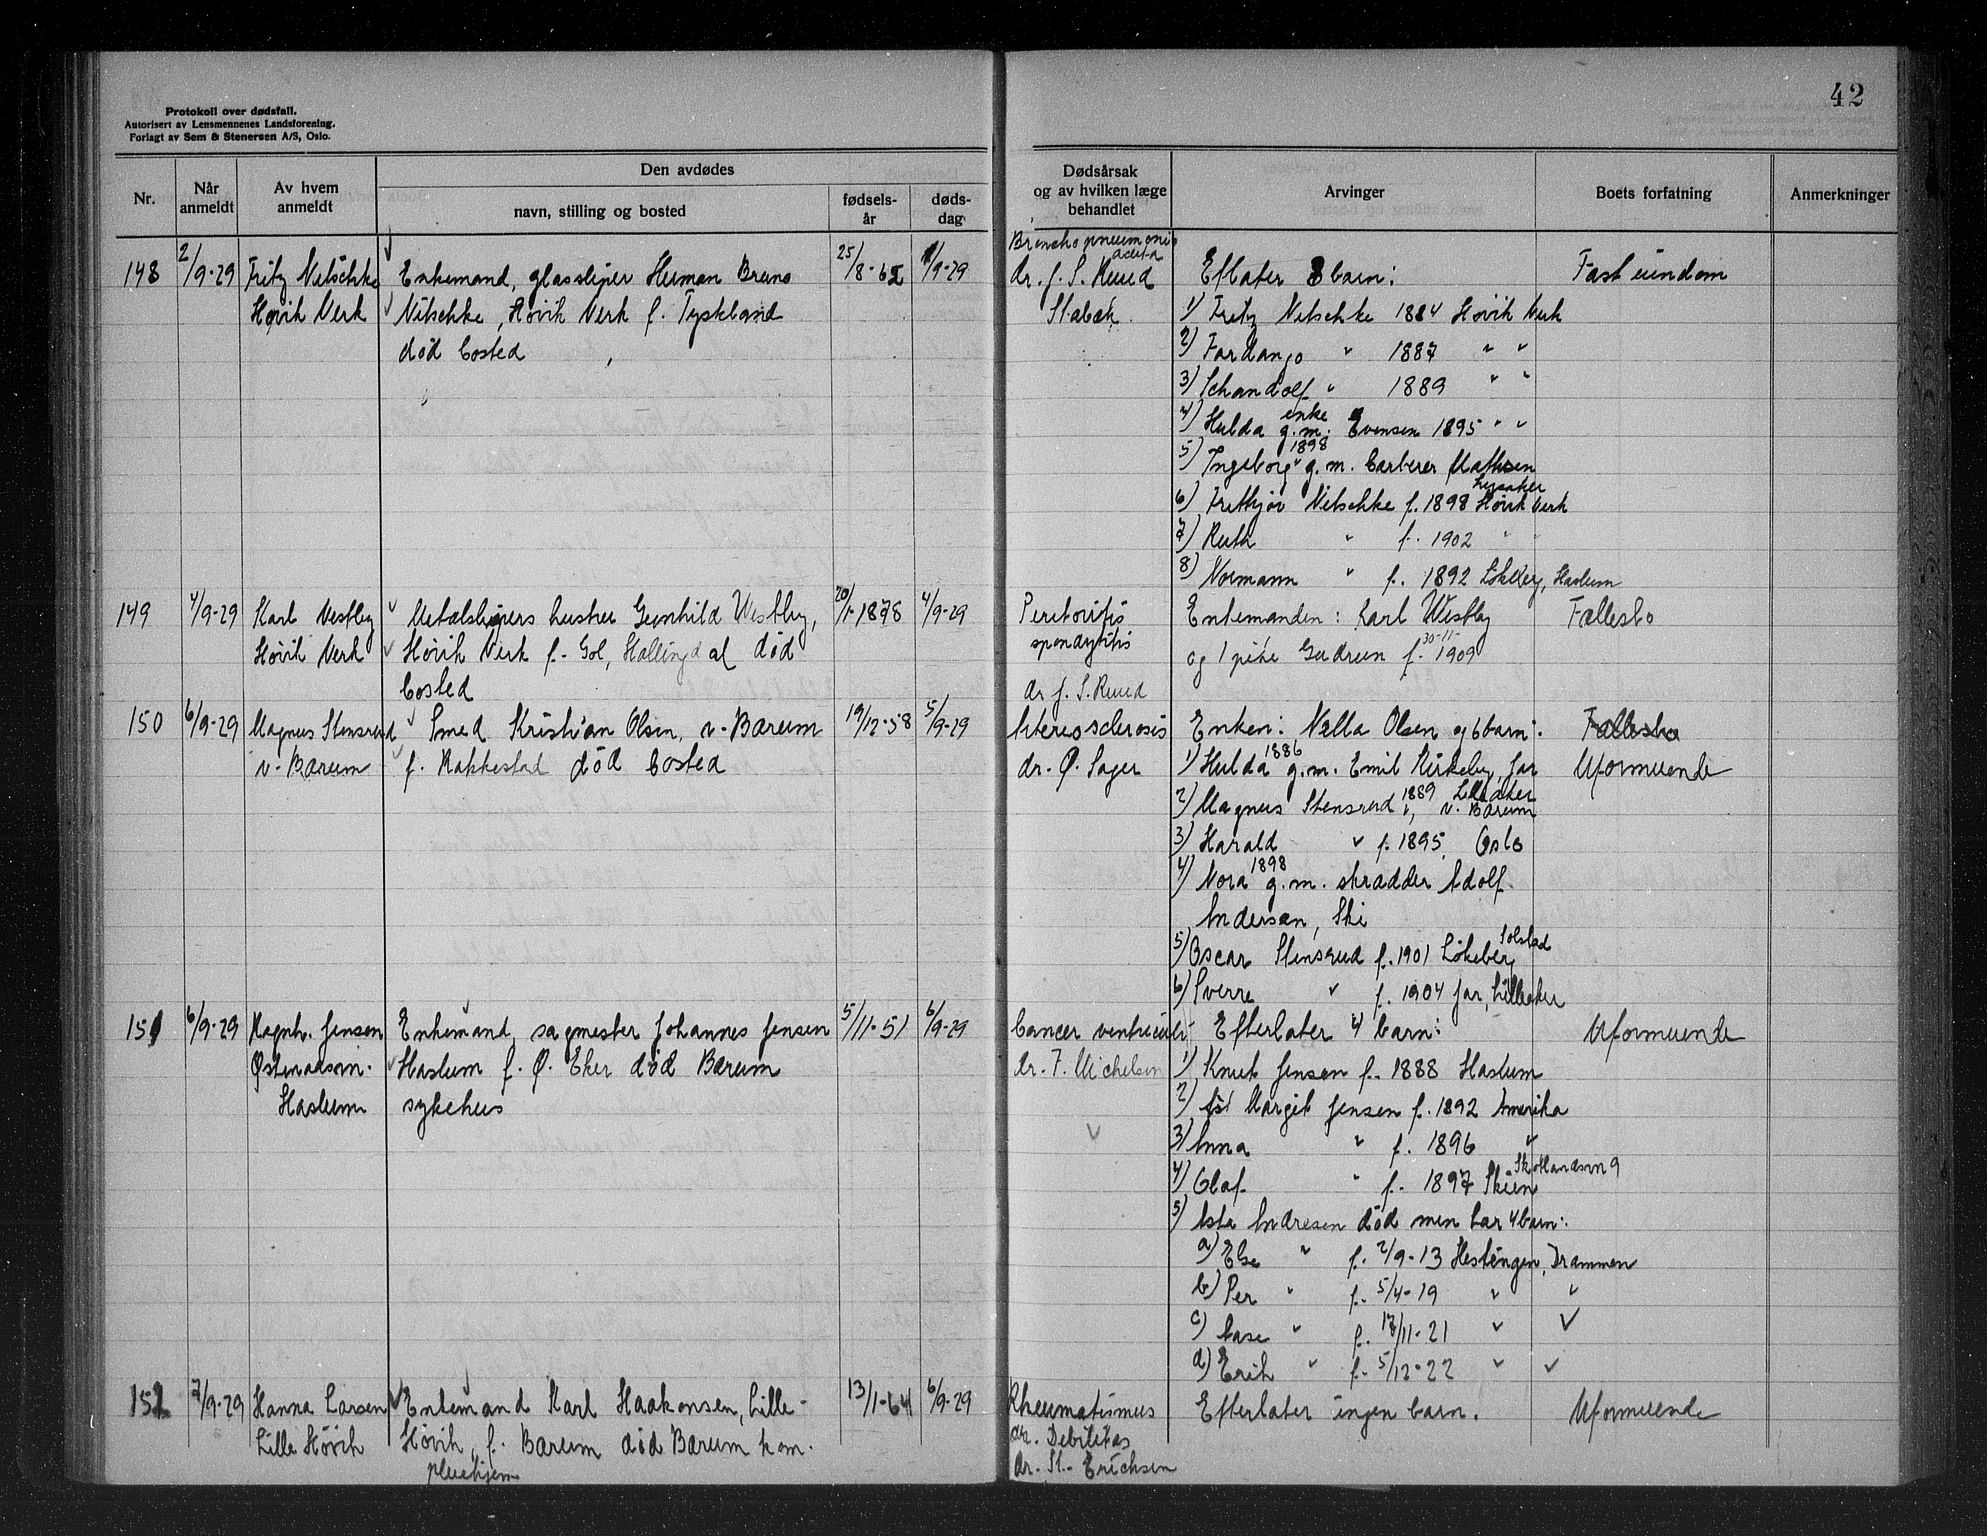 42
Protokoll over dødsfall.
Autorisert av Lensmennenes Landsforening.
Forlagt av Sem & Stenersen A/S, Oslo.
Nr.
Når anmeldt
Av hvem anmeldt
Den avdødes
navn, stilling og bosted
fødsels-år
døds-dag
Dødsårsak og av hvilken læge behandlet
Arvinger
Boets forfatning
Anmerkninger
148 2/9-29 Fritz Nitschke Enkemand, glassliper Herman Bruno 25/8-62 1/9-29
Høvik Verk Nitschke, Høvik Verk f. Tyskland
død bosted
Bronchopneumonia acuta
dr. J. S. Ruud
Stabæk.
Eflater 8 barn: Fast eiendom
1) Fritz Nitschke 1884 Høvik Verk
2) Fardango " 1887 " "
3) Schandolf " 1889 " "
4) Hulda enke g.m. Evensen 1895 " "
5) Ingeborg 1898 g.m. barberer Mathsen
Lysaker
6) Fritkjov Nitschke f. 1898 Høvik Verk
7) Ruth " f. 1902 " "
8) Normann " f. 1892 Løkeberg, Haslum
149 4/9-29 Karl Vestby Metalslipers hustru Gunhild Westby, 20/1-1878 4/9-29
Høvik Verk Høvik Verk f. Gol, Hallingdal død
bosted
Peritonitis
dr J. S. Ruud
Enkemanden: Karl Westby Fællesbo
og 1 pike Gudrun f. 30-11-1909
150 6/9-29 Magnus Stensrud Smed Kristian Olsen, v. Bærum 19/12-58 5/9-29
v. Bærum f. Rakkestad død bosted
Artereosclerosis
dr. Ø. Sager
Enken: Nella Olsen og 6 barn: Fællesbo
1) Hulda 1886 g.m. Emil Kirkeby, Jar Uformuende
Lilleaker
2) Magnus Stensrud 1889 " v. Bærum
3) Harald " f. 1895 Oslo
4) Nora 1898 g.m. skrædder Adolf
Andersen, Ski
5) Oscar Stensrud f. 1901 Løkeberg Solstad
6) Sverre " f. 1904 Jar, Lilleaker
151 6/9-29 Ragnh. Jensen Enkemand, sagmester Johannes Jensen 5/11-51 6/9-29
Haslum f. Ø. Eker død Bærum
Haslum sykehus
Cancer ventriculi
dr. F. Michelsen
Efterlater 4 barn: Uformuende
1) Knut Jensen f. 1888 Haslum
2) Margit Jensen f. 1892 Amerika
3) Anna " f. 1896 "
4) Olaf " f. 1897 Skien
5) Asta Andresen død men har 4 barn:
a) Else " f. 2/9-13 Hestengen, Drammen
b) Per " f. 5/4-19 " "
c) Aase " f. 17/11-21 " "
d) Erik " f. 5/12-22 " "
152 7/9-29 Hanna Larsen Enkemand Karl Haakonsen, Lille- 13/1-64 6/9-29
Lille Høvik Høvik, f. Bærum død Bærum kom.
pleiehjem
Rheumatismus
dr. Debilitas
dr. St. Erichsen
Efterlater ingen barn. Uformuende